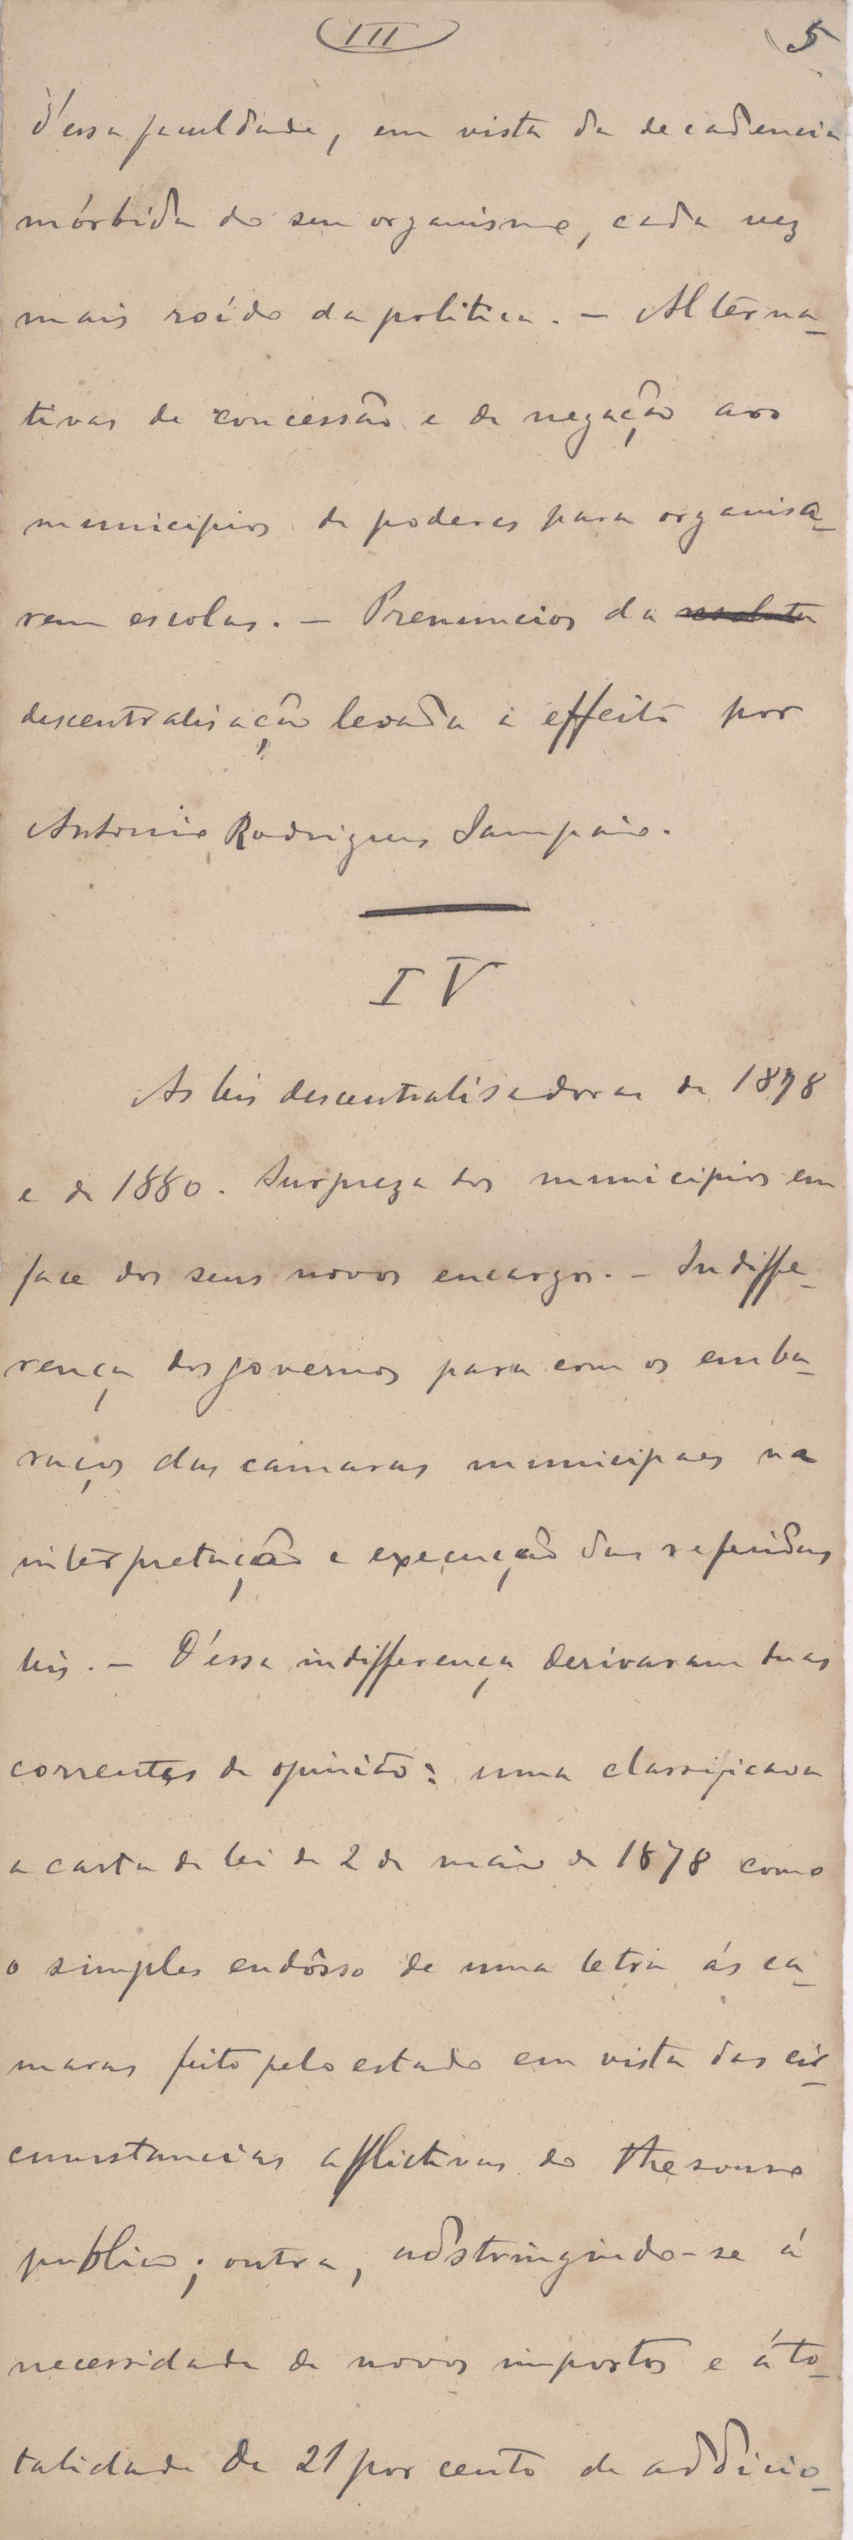 III
5
d'essa faculdade, em vista da decadencia
mórbida do seu organismo, cada vez
mais roído da politica. - Alterna-
tivas de concessão e de negação aos
municipios de poderes para organisa-
rem escolas. - Prenuncios da
descentralisação levada a effeito por
Antonio Rodrigues Sampaio.
IV
As leis descentralisadoras de 1878
e de 1880. Surpreza dos municipios em
face dos seus novos encargos. - Indiffe-
rença dos governos para com os emba-
raços das camaras municipaes na
interpretação e execução das referidas
leis. - D'essa indifferença derivaram duas
correntes de opinião: uma classificava
a carta de lei de 2 de maio de 1878 como
o simples endôsso de uma letra ás ca-
maras feito pelo estado em vista das cir-
cumstancias afflictivas do thesouro
publico; outra, adstringindo-se á
necessidade de novos impostos e á to-
talidade de 21 por cento de addicio-